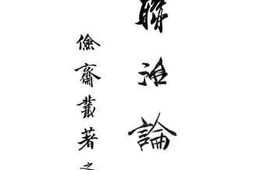 聯治論
儉齋叢著之